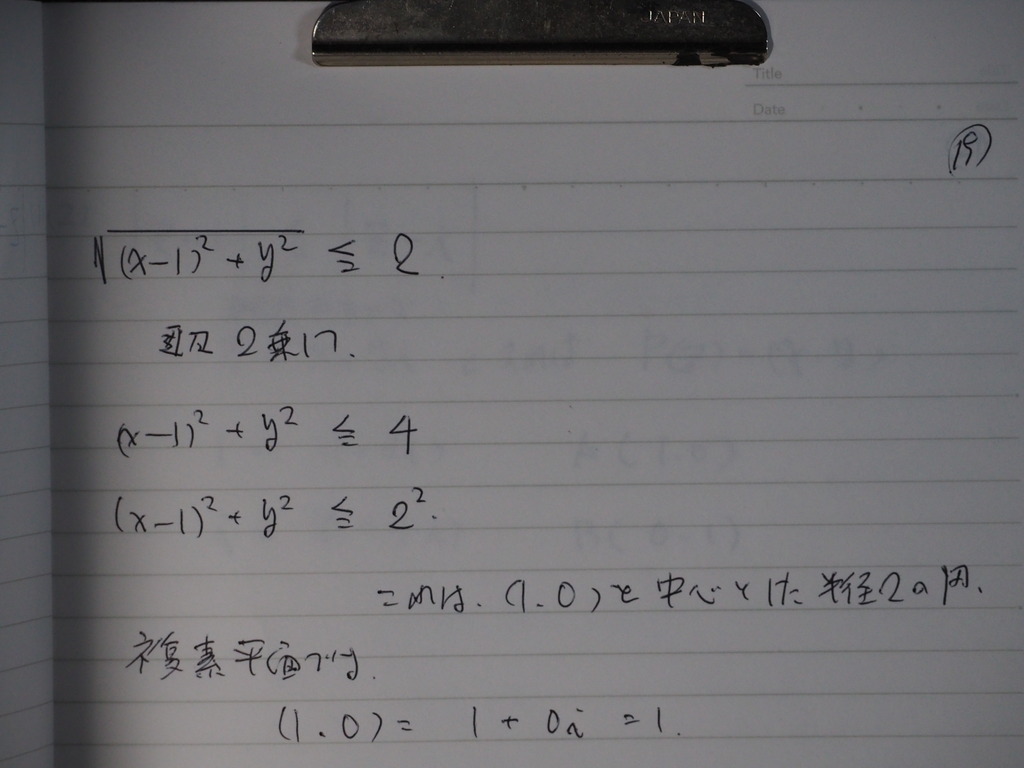 JAPAN
Title
Date
19
√(x-1)² + y² ≦ 2.
2乗して.
(x-1)² + y² ≦ 4
(x-1)² + y² ≦ 2².
これは. (1.0)を中心とした半径2の円.
複素平面では.
(1.0) = 1 + 0i = 1.